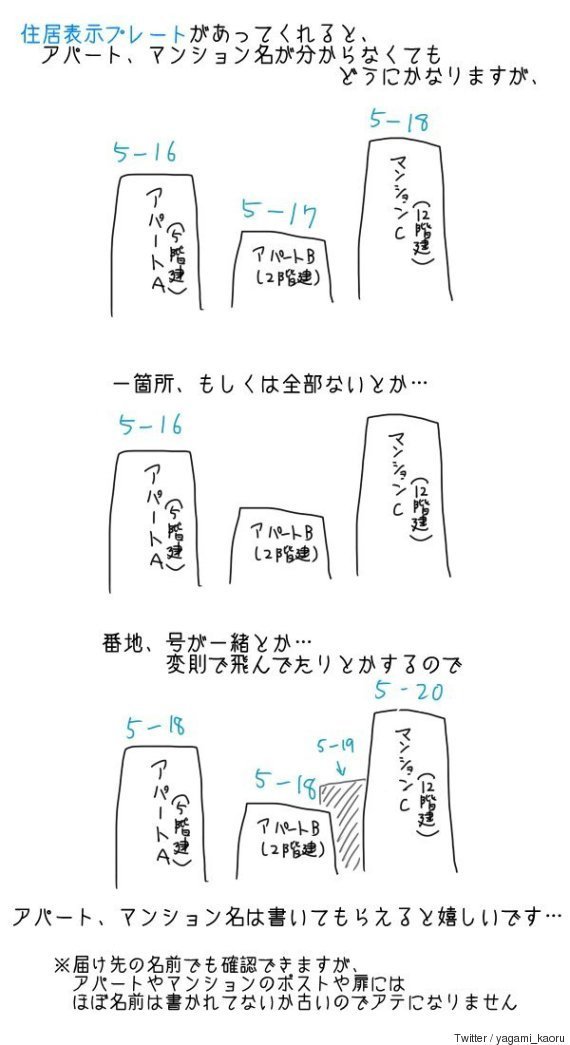 住居表示プレートがあってくれると、
アパート、マンション名が分からなくても
どうにかなりますが、
5-16
5-17
5-18
アパートA
(5階建)
アパートB
(2階建)
マンションC
(12階建)
一箇所、もしくは全部ないとか…
5-16
アパートA
(5階建)
アパートB
(2階建)
マンションC
(12階建)
番地、号が一緒とか…
変則で飛んでたりとかするので
5-18
5-18
5-19
5-20
アパートA
(5階建)
アパートB
(2階建)
マンションC
(12階建)
アパート、マンション名は書いてもらえると嬉しいです…
※届け先の名前でも確認できますが、
アパートやマンションのポストや扉には
ほぼ名前は書かれてないか古いのでアテになりません
Twitter / yagami_kaoru